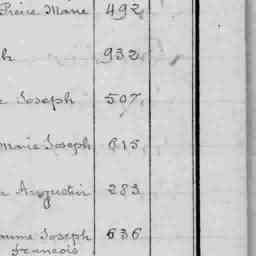 Pierre Marie 492
932
Joseph 507
Marie Joseph 615
Augustin 283
Joseph 636
françois